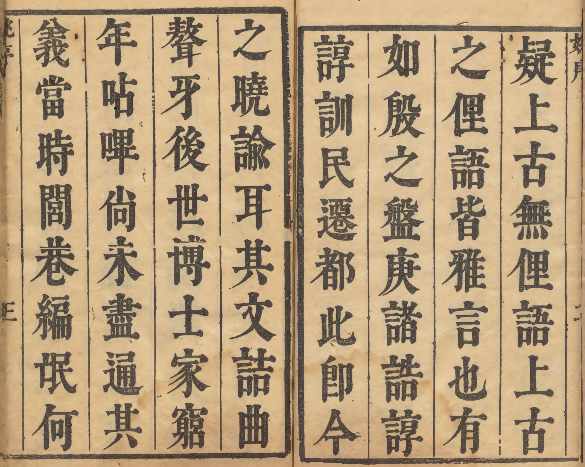 疑上古無俚語上古
之俚語皆雅言也有
如殷之盤庚諸誥諄
諄訓民遷都此卽今
之曉諭耳其文詰曲
聱牙後世博士家窮
年呫嗶尙未盡通其
義當時閭巷編氓何